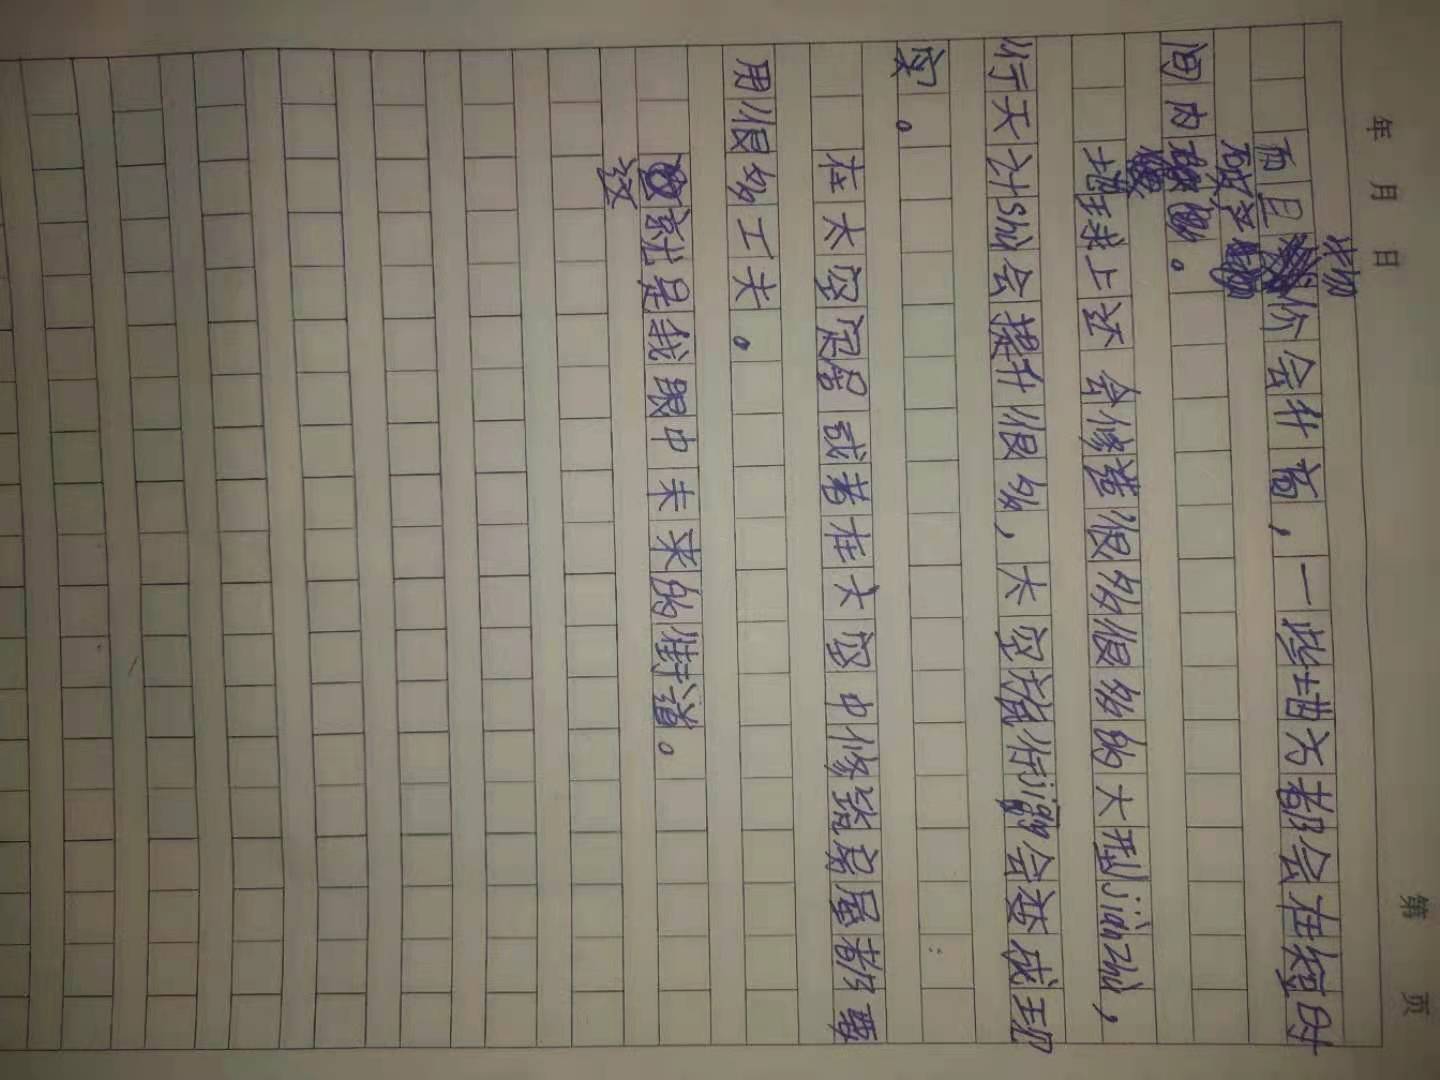 年 月 日 第 页
而且物价会升高，一些地方都会在短时
间内被
地球上还会修建很多很多的大型jiànzhù，
航天jìshù会提升很多，太空旅行jiāng会变成现
实。
在太空定居或者在太空中修筑房屋都要
用很多工夫。
这就是我眼中未来的街道。